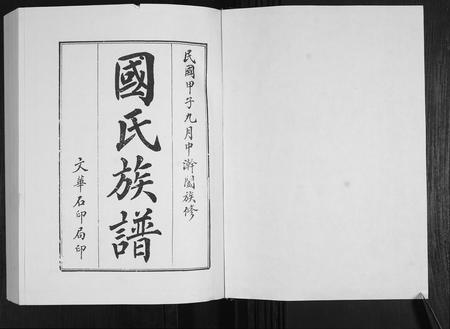 民國甲子九月中澣闔族修
國氏族譜
文華石印局印